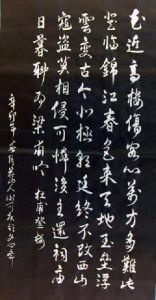 花近高樓傷客心萬方多難此
登臨錦江春色來天地玉壘浮
雲變古今北極朝廷終不改西山
寇盜莫相侵可憐後主還祠廟
日暮聊為梁甫吟 杜甫登樓
辛卯年